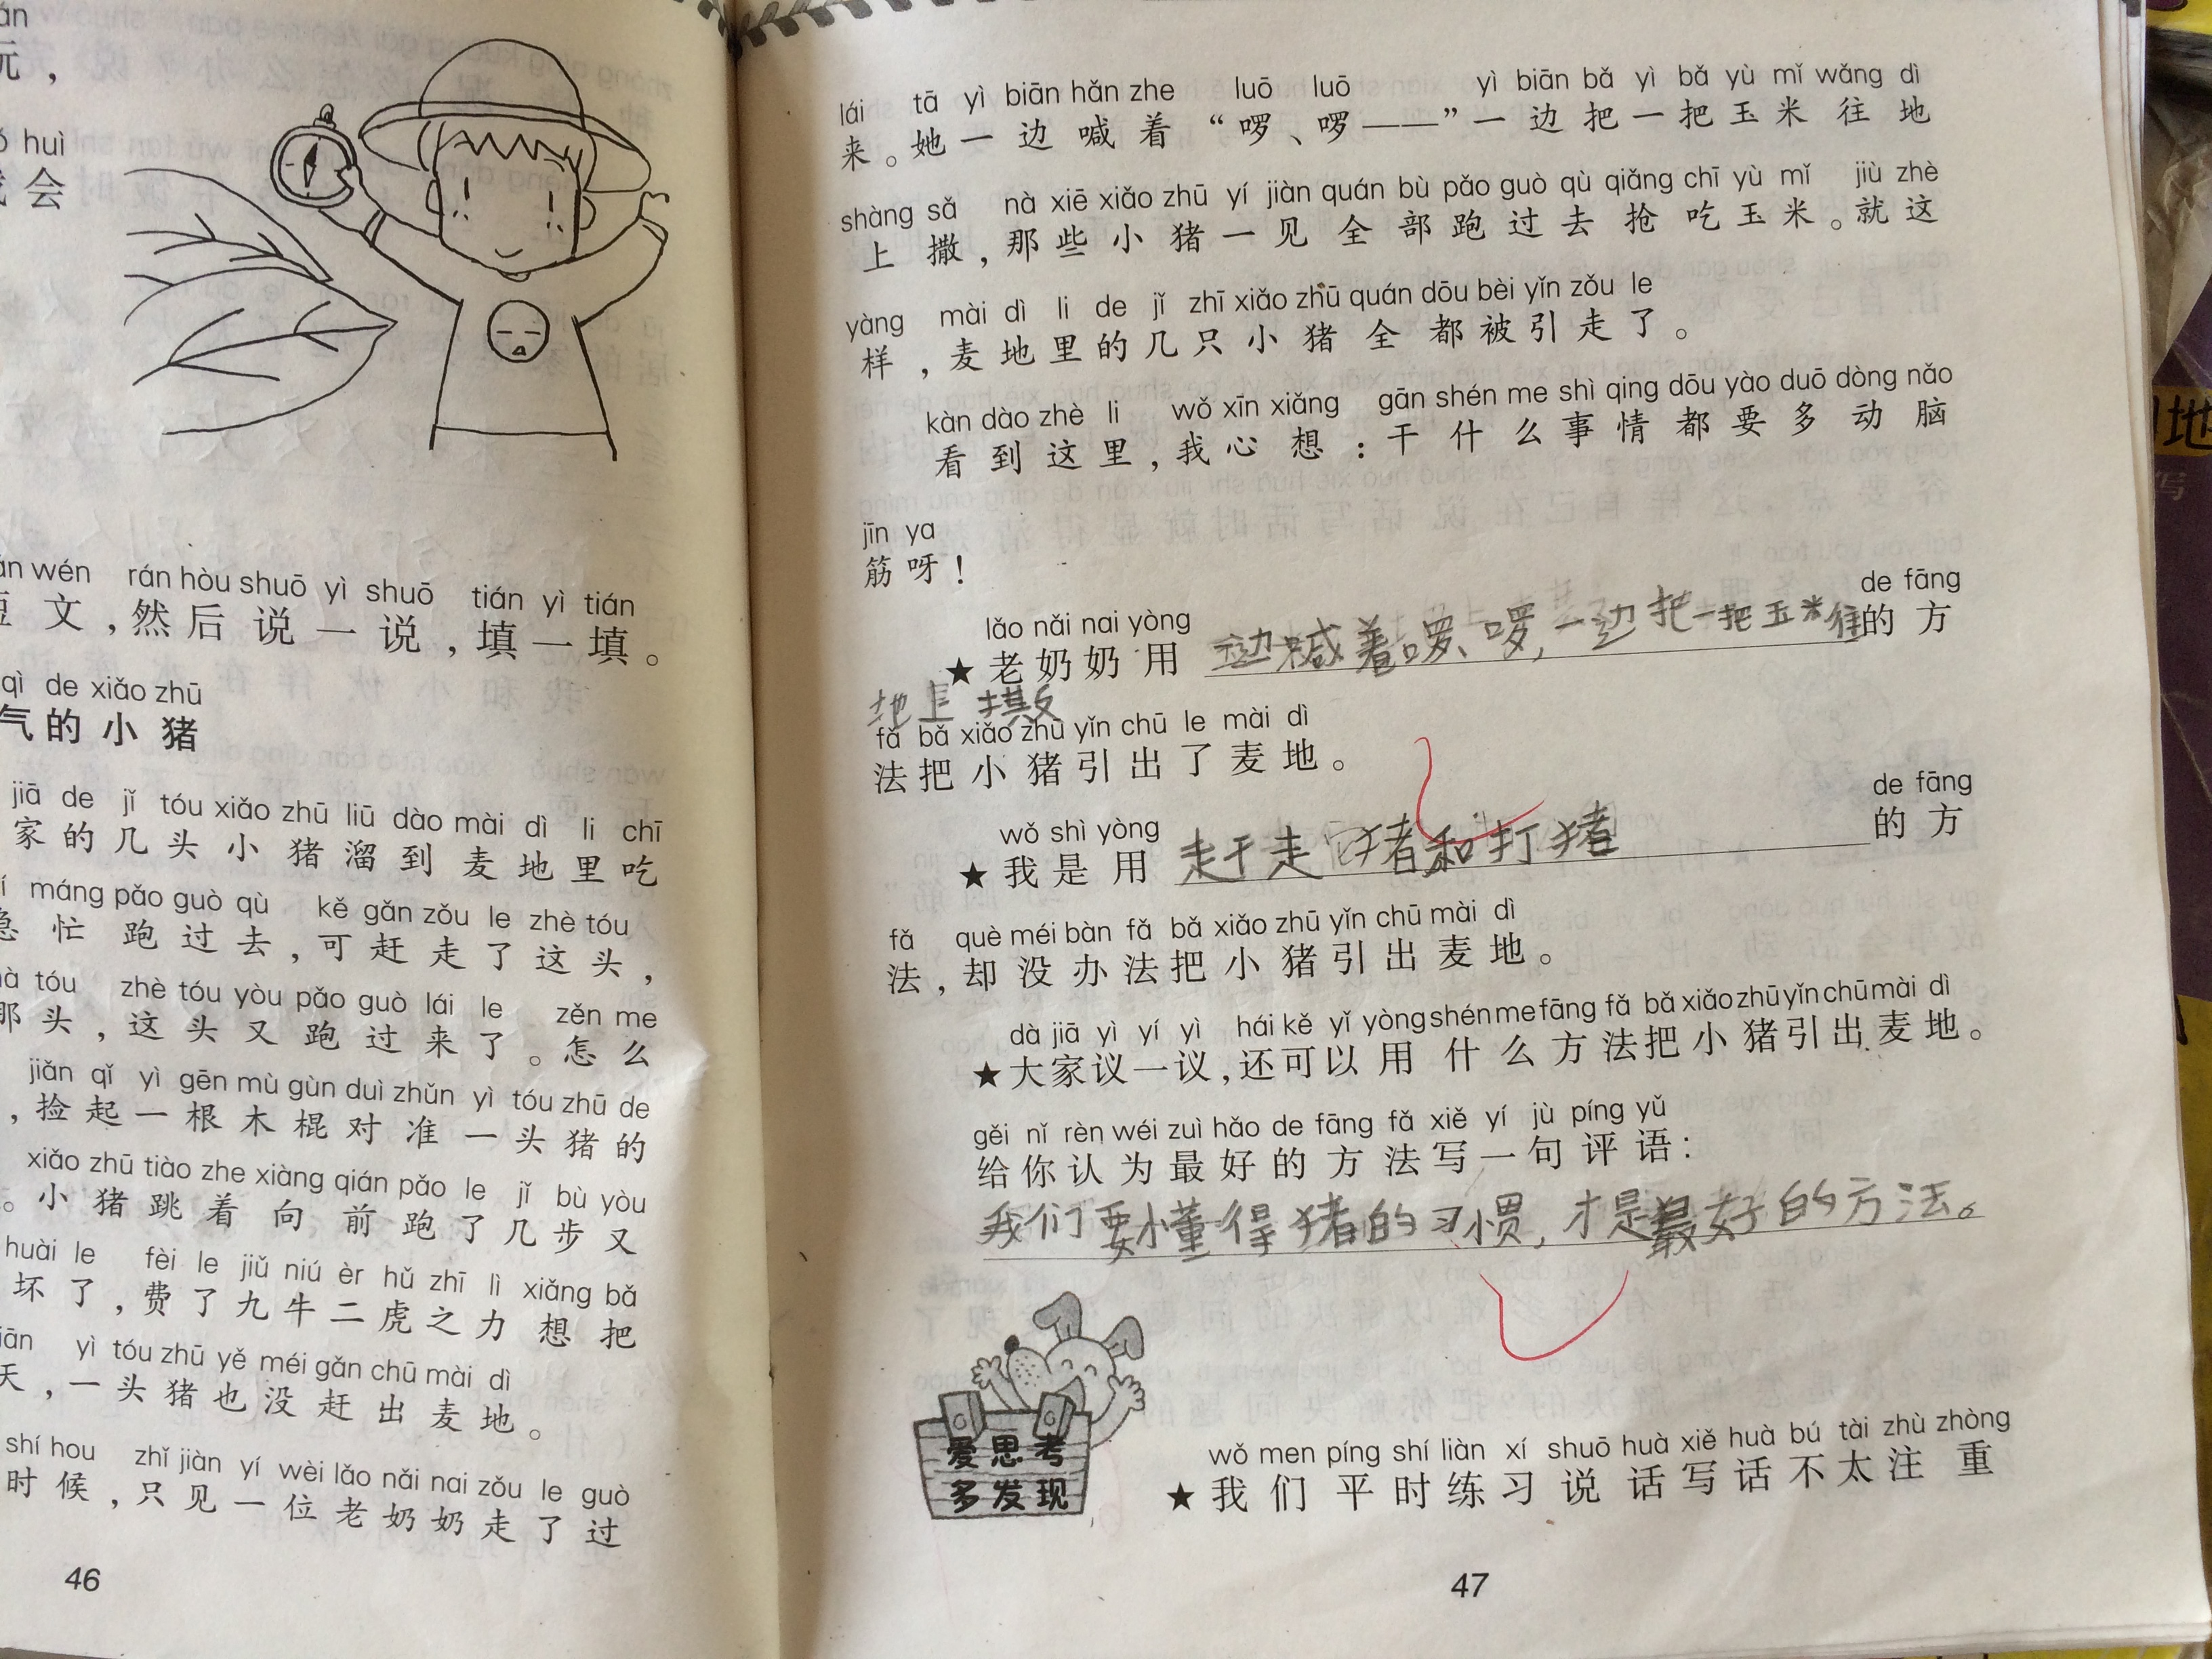 玩，
huì
会
wén rán hòu shuō yì shuō tián yì tián
文，然后说一说，填一填。
qì de xiǎo zhū
气的小猪
jiā de jǐ tóu xiǎo zhū liū dào mài dì li chī
家的几头小猪溜到麦地里吃
máng pǎo guò qù kě gǎn zǒu le zhè tóu
忙跑过去，可赶走了这头，
tóu zhè tóu yòu pǎo guò lái le zěn me
那头，这头又跑过来了。怎么
jiǎn qǐ yì gēn mù gùn duì zhǔn yì tóu zhū de
，捡起一根木棍对准一头猪的
xiǎo zhū tiào zhe xiàng qián pǎo le jǐ bù yòu
。小猪跳着向前跑了几步又
huài le fèi le jiǔ niú èr hǔ zhī lì xiǎng bǎ
坏了，费了九牛二虎之力想把
yì tóu zhū yě méi gǎn chū mài dì
天，一头猪也没赶出麦地。
shí hou zhǐ jiàn yí wèi lǎo nǎi nai zǒu le guò
时候，只见一位老奶奶走了过
46
lái tā yì biān hǎn zhe luō luō yì biān bǎ yì bǎ yù mǐ wǎng dì
来。她一边喊着“啰、啰——”一边把一把玉米往地
shàng sǎ nà xiē xiǎo zhū yí jiàn quán bù pǎo guò qù qiǎng chī yù mǐ jiù zhè
上撒，那些小猪一见全部跑过去抢吃玉米。就这
yàng mài dì li de jǐ zhī xiǎo zhū quán dōu bèi yǐn zǒu le
样，麦地里的几只小猪全都被引走了。
kàn dào zhè li wǒ xīn xiǎng gān shén me shì qing dōu yào duō dòng nǎo
看到这里，我心想：干什么事情都要多动脑
jīn ya
筋呀！
lǎo nǎi nai yòng de fāng
★老奶奶用边喊着啰、啰，一边把一把玉米往的方
地上撒
fǎ bǎ xiǎo zhū yǐn chū le mài dì
法把小猪引出了麦地。
wǒ shì yòng de fāng
★我是用赶走猪和打猪的方
fǎ què méi bàn fǎ bǎ xiǎo zhū yǐn chū mài dì
法，却没办法把小猪引出麦地。
dà jiā yì yí yì hái kě yǐ yòng shén me fāng fǎ bǎ xiǎo zhū yǐn chū mài dì
★大家议一议，还可以用什么方法把小猪引出麦地。
gěi nǐ rèn wéi zuì hǎo de fāng fǎ xiě yí jù píng yǔ
给你认为最好的方法写一句评语：
我们要懂得猪的习惯，才是最好的方法。
爱思考
多发现
wǒ men píng shí liàn xí shuō huà xiě huà bú tài zhù zhòng
★我们平时练习说话写话不太注重
47
地
写